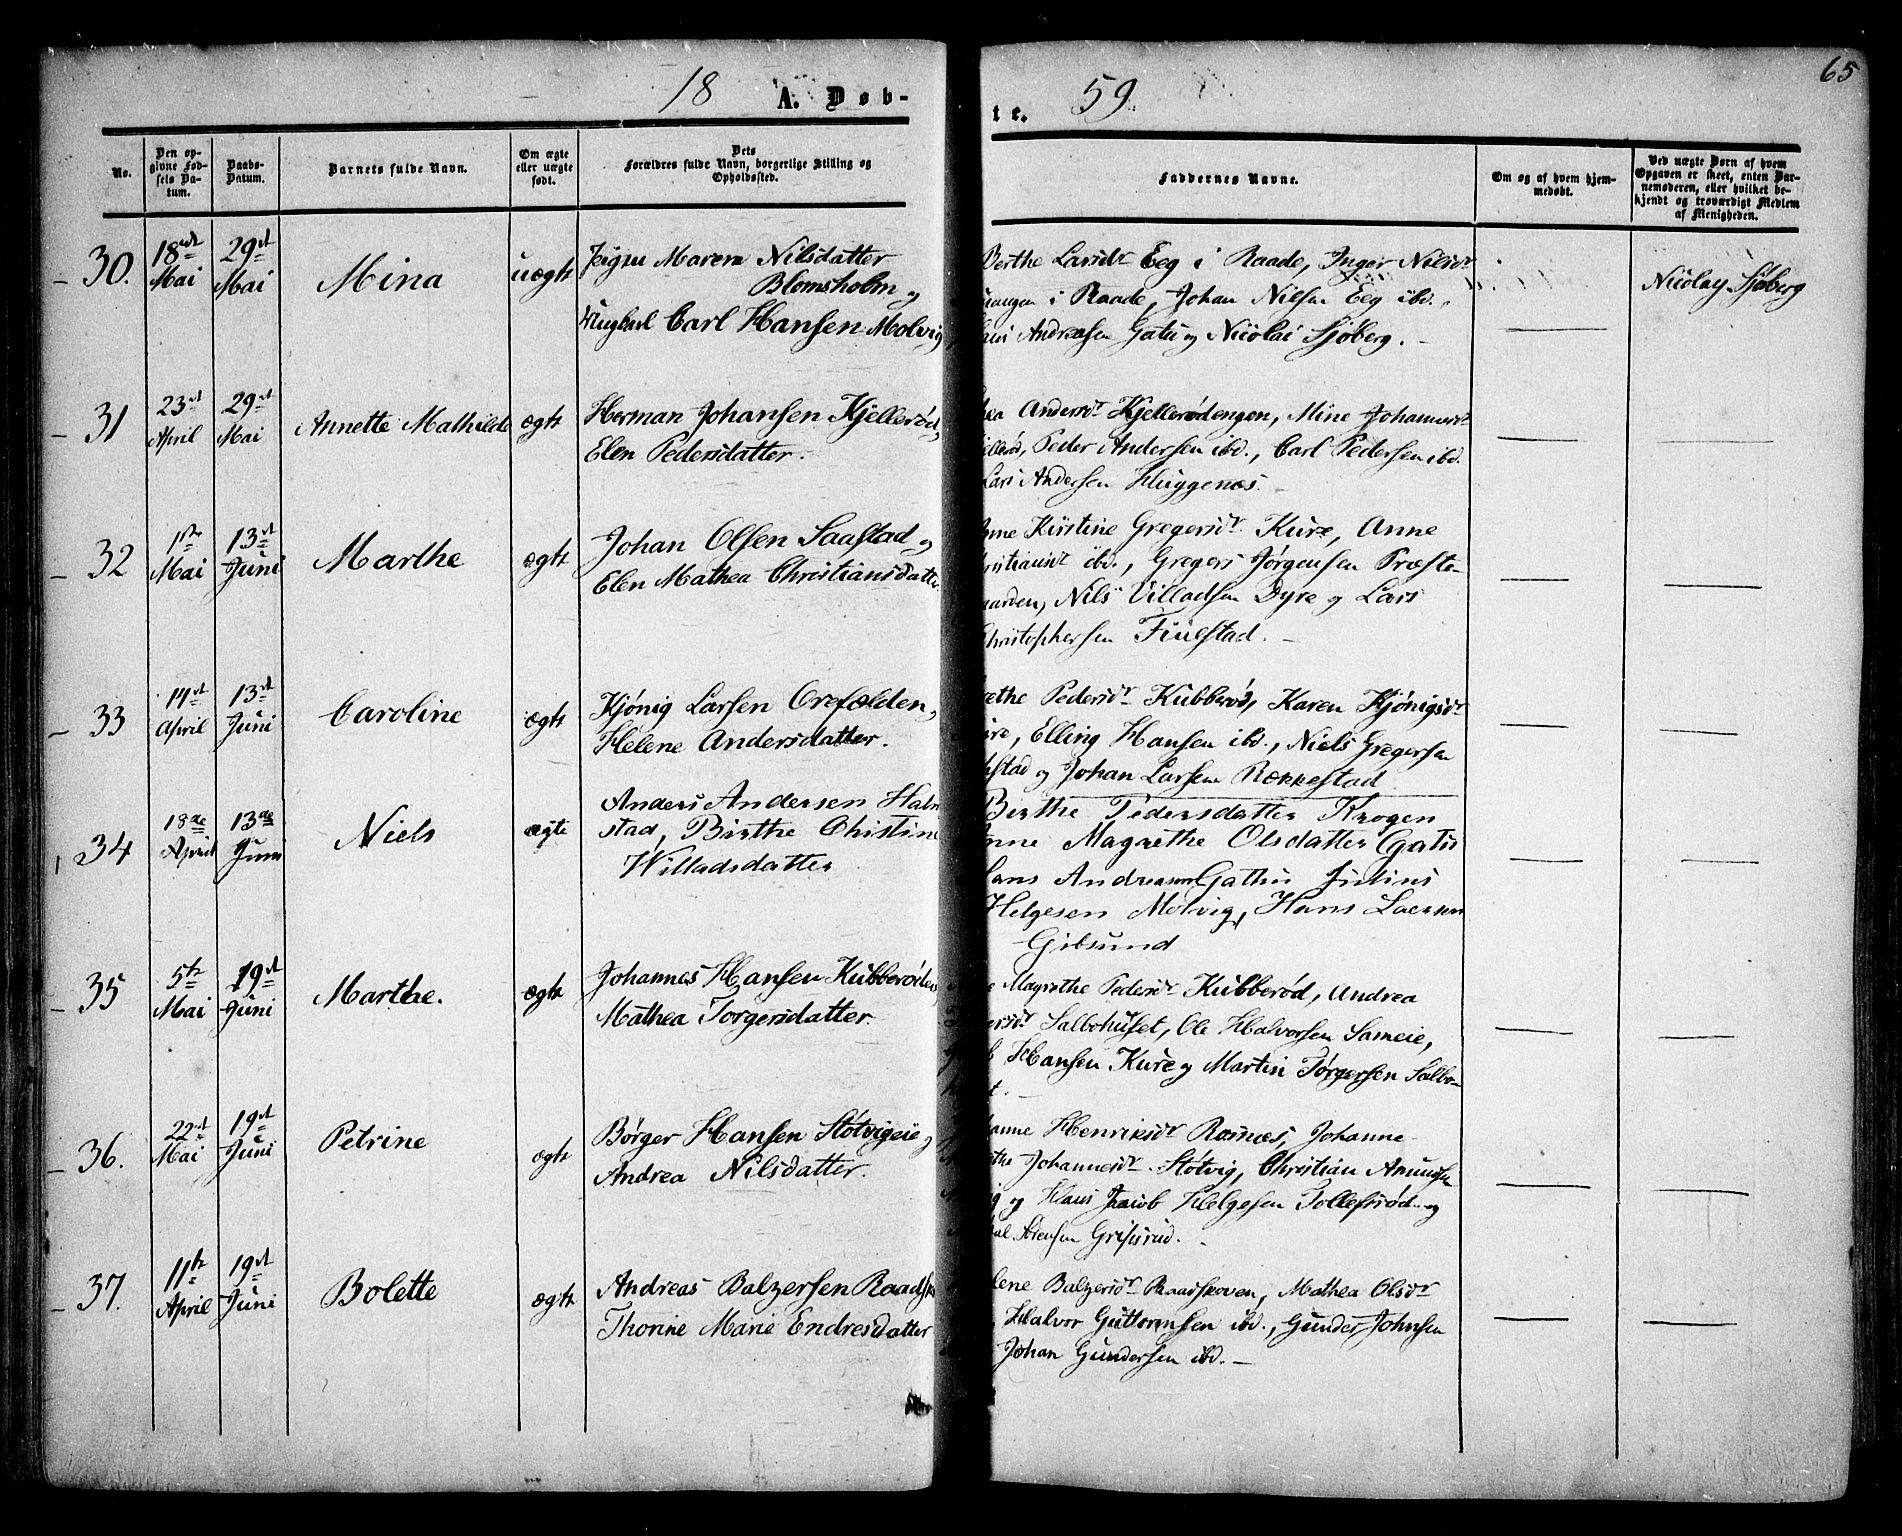 18 A. Døb-
te. 59.
65
No.
Den op-
givne Fød-
sels Da-
tum.
Daabs-
Datum.
Barnets fulde Navn.
Om ægte
eller uægte
født.
Dets
Forældres fulde Navn, borgerlige Stilling og
Opholdssted.
Faddernes Navne.
Om og af hvem hjem-
medøbt.
Ved uægte Børn af hvem
Opgaven er skeet, enten Bar-
nemoderen, eller hvilket be-
kjendt og troværdigt Medlem
af Menigheden.
30.
18de
Mai
29de
Mai
Mina
uægte
Pigen Maren Nilsdatter
Blomsholm og
Ungkarl Carl Hansen Molvig
Berthe Larsdr Eeg i Raade, Inger Nilsdr
i Raade, Johan Nilsen Eeg ibd.
Andreasen Gatu og Nicolai Sjøberg.
Nicolay Sjøberg
31
23de
April
29de
Mai
Annette Mathilde
ægte
Herman Johansen Kjellerød,
Elen Pedersdatter.
Andersdr Kjellerødengen, Mine Johannesdr
Peder Andersen ibd., Carl Pedersen ibd.
Lars Andersen Huggenæs.
32
1ste
Mai
13de
Juni
Marthe
ægte
Johan Olsen Saastad og
Elen Mathea Christiansdatter.
Kirstine Gregersdr Kure, Anne
ibd., Gregers Jørgensen Præste-
gaarden, Nils Villadsen Dyre og Lars
Christophersen Finestad.
33
14de
April
13de
Juni
Caroline
ægte
Kjönig Larsen Orefolden,
Helene Andersdatter.
Pedersdr Kubberød, Karen Kjönigsdr
Elling Hansen ibd., Niels Gregersen
og Johan Larsen Rokkestad
34
18de
April
13de
Juni
Niels
ægte
Anders Andersen Haln
stad, Birthe Christine
Willadsdatter
Birthe Pedersdatter Krogen
Anne Magrethe Olsdatter Gatu
Hans Andreasen Gathu Julius
Helgesen Molvig, Hans Laersen
Gibsund
35
5te
Mai
19de
Juni
Marthe.
ægte
Johannes Hansen Kubberød
Mathea Torgersdatter.
Magrethe Pedersdr Kubberød, Andrea
Salbohuset, Ole Halvorsen Sameie,
Hansen Kure og Martin Torgersen Salbo-
36.
22de
Mai
19de
Juni
Petrine
ægte
Börger Hansen Støtvigeie og
Andrea Nilsdatter.
Henriksdr Ramnæs, Johanne
Johannesdr Støtvig, Christian Amundsen
og Hans Jacob Helgesen Tollefsrød og
Grisrud.
37.
11te
April
19de
Juni
Bolette
ægte
Andreas Balzersen
Thorine Marie Endresdatter
Balzersdr Raadskoven, Mathea Olsdr
Halvor Guttormsen ibd., Gunder Johnsen
Johan Gundersen ibd.